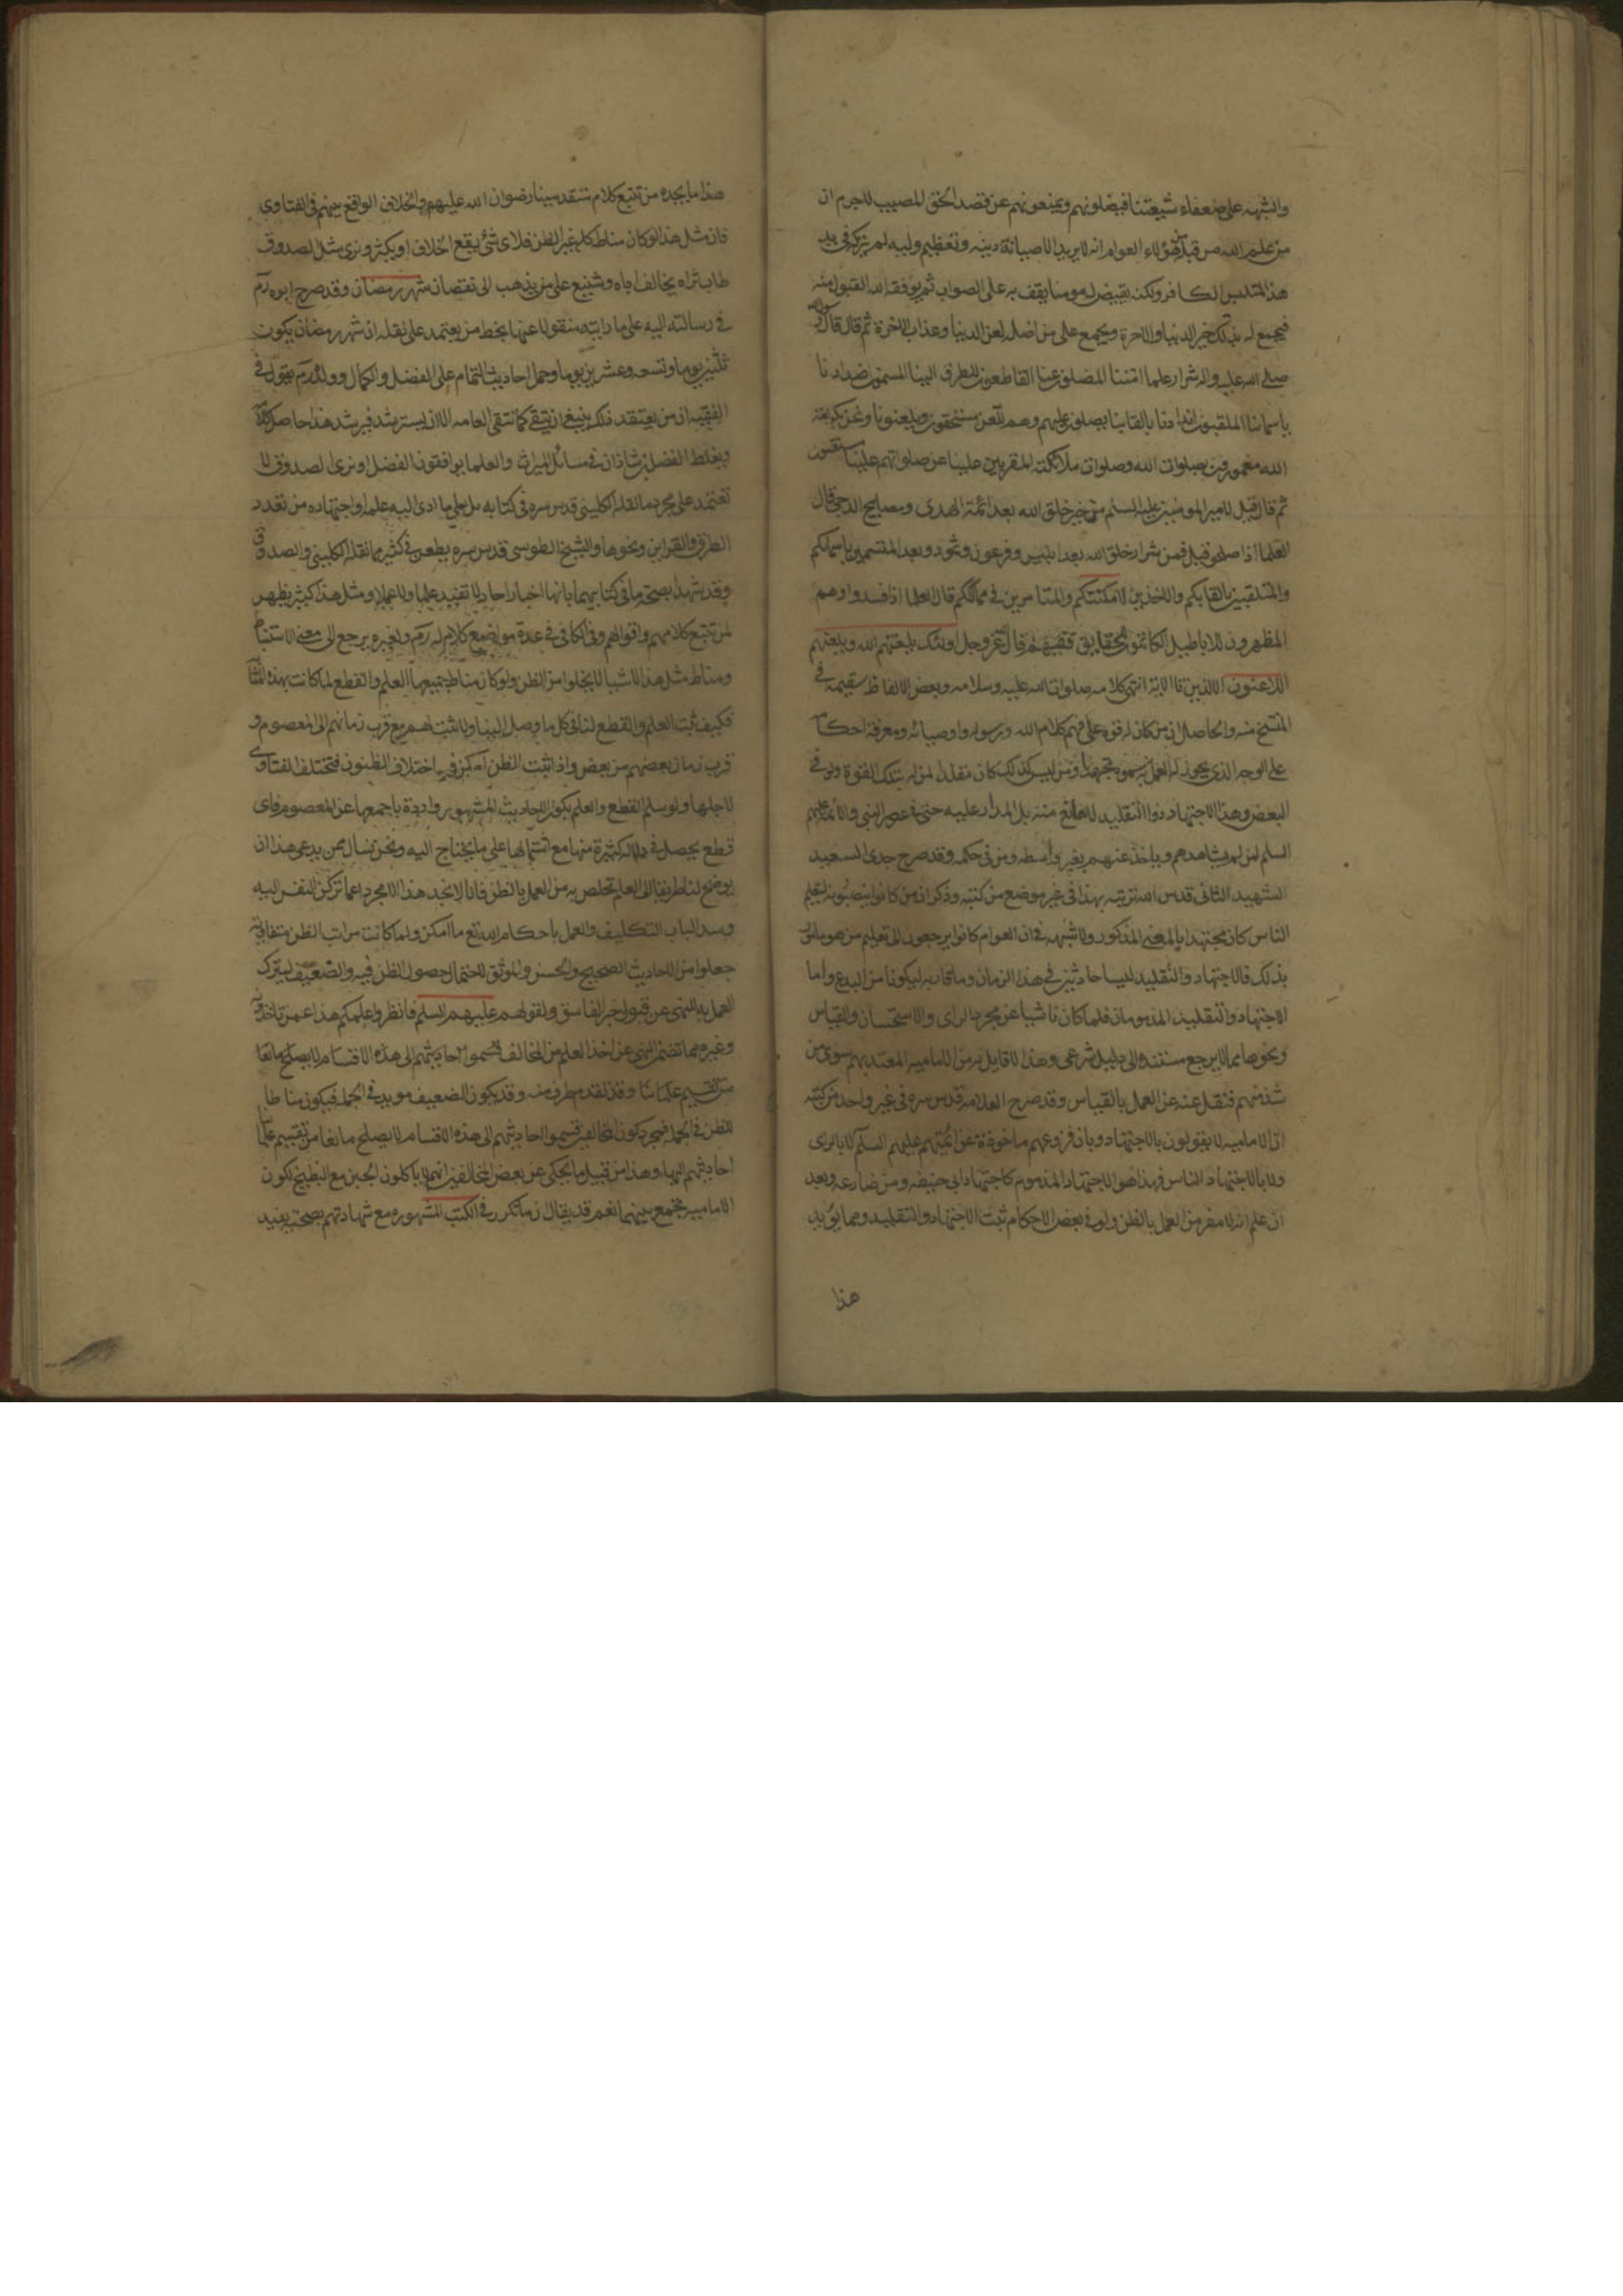 والشبهه على ضعفاء شيعتنا فيضلونهم ويمنعونهم عن قصد الحق المصيب لاجرم ان
من علم الله من قبله من هؤلاء العوام انه لا يريد الا صيانة دينه وتعظيم وليه لم يتركه في يد
هذا المتلبس الكافر ولكنه يقيض له مومنا يقف به على الصواب ثم يوفقه الله القبول منه
فيجمع له بذلك خير الدنيا والاخرة ويجمع على من اضله لعن الدنيا وعذاب الاخرة ثم قال قال رسول الله
صلى الله عليه واله شرار علماء امتنا المضلون عنا القاطعون للطرق الينا المسمون اضدادنا
باسمائنا الملقبون اندادنا بالقابنا يصلون عليهم وهم للعن مستحقون ويلعنونا ونحن بكرامة
الله مغمورون بصلوات الله وصلوات ملائكته المقربين علينا عن صلواتهم علينا مستغنون
ثم قال قيل لامير المومنين عليه السلم من خير خلق الله بعد ائمة الهدى ومصابيح الدجى قال
العلماء اذا صلحوا قيل فمن شرار خلق الله بعد ابليس وفرعون وثمود وبعد المتسمين باسمائكم
والمتلقبين بالقابكم والاخذين لامكنتكم والمتامرين في ممالككم قال العلماء اذا فسدوا وهم
المظهرون للاباطيل الكاتمون للحقايق وفيهم قال الله عز وجل اولئك يلعنهم الله ويلعنهم
اللاعنون الا الذين تابوا الاية انتهى كلامه صلوات الله عليه وسلامه وبعض الالفاظ سقيمة في
النسخ منه والحاصل ان من كان له قوة على فهم كلام الله ورسوله واوصيائه ومعرفة احكامه
على الوجه الذي يجوز له العمل به سموه مجتهدا ومن ليس كذلك كان مقلدا لمن له تلك القوة ولو في
البعض وهذا الاجتهاد وذا التقليد لا مانع منه بل المدار عليه حتى في عصر النبي والائمة عليهم
السلم لمن لم يشاهدهم وياخذ عنهم بغير واسطه ومن في حكمه وقد صرح جدى السعيد
الشهيد الثانى قدس الله تربته بهذا في غير موضع من كتبه وذكر ان من كانوا ينصبونه لتعليم
الناس كان مجتهدا بالمعنى المذكور ولا شبهه في ان العوام كانوا يرجعون الى تعليم من هو مامور
بذلك فالاجتهاد والتقليد ليسا حادثين في هذا الزمان وما قاربه ليكونا من البدع واما
الاجتهاد والتقليد المذمومان فلما كان ناشيا عن مجرد الراى والاستحسان والقياس
ونحوها مما لا يرجع مستنده الى دليل شرعى وهذا لا قايل به من الاماميه المعتد بهم سوى من
شذ منهم فنقل عنه عن العمل بالقياس وقد صرح العلامه قدس سره في غير واحد من كتبه
ان الاماميه لا يقولون بالاجتهاد وبان فروعهم ماخوذة عن ائمتهم عليهم السلم لا بالراى
ولا بالاجتهاد الناس فهذا هو الاجتهاد المذموم كاجتهاد ابى حنيفه ومن ضارعه وبعد
ان علم انه لا مفر من العمل بالظن ولو في بعض الاحكام ثبت الاجتهاد والتقليد ومما يؤيد
هذا
هذا ما يجده من تتبع كلام متقدمينا رضوان الله عليهم والخلاف الواقع بينهم في الفتاوى
فان مثل هذا لو كان مناط كله غير الظن فلاى شئ يقع الخلاف او يكثر ونرى مثل الصدوق
طاب ثراه يخالف اباه ويشنع على من يذهب الى نقصان شهر رمضان وقد صرح ابوه رحمه
في رسالته اليه على ما رايته منقولا عنها بخط من يعتمد على نقله ان شهر رمضان يكون
ثلثين يوما وتسعه وعشرين يوما وحمل احاديث التمام على الفضل والكمال وولده رحمه يقول في
الفقيه ان من يعتقد ذلك ينبغى ان يتقى كما تتقى العامه الا ان يسترشد فيرشد هذا حاصل كلامه
ويغلط الفضل بن شاذان في مسائل الميراث والعلماء يوافقون الفضل او نرى الصدوق لا
تعتمد على مجرد ما نقله الكلينى قدس سره في كتابه بل على ما ادى اليه علمه واجتهاده من تعدد
الطرق والقراين ونحوها والشيخ الطوسى قدس سره يطعن في كثير مما نقله الكلينى والصدوق
وقد شهدا بصحة ما في كتابيهما بانها اخبار احاد لا تفيد علما ولا عملا ومثل هذا كثير يظهر
لمن تتبع كلامهم واقوالهم وفي الكافى في عدة مواضع كلام له رحمه ولغيره يرجع الى معنى الاستنباط
ومناط مثل هذه الاشيا لا يخلوا من الظن ولو كان مناط جميعها العلم والقطع لما كانت بهذه المثابة
فكيف ثبت العلم والقطع لنا في كل ما وصل الينا ولا يثبت لهم مع قرب زمانهم الى المعصوم و
قرب زمان بعضهم من بعض واذا ثبت الظن امكن فيه اختلاف الظنون فتختلف الفتاوى
لاجلها ولو سلم القطع والعلم بكون الاحاديث المشهوره واردة باجمعها عن المعصوم فاى
قطع يحصل في دلالة كثيرة منها مع اشتمالها على ما يحتاج اليه ونحن نسال ممن يدعى هذا ان
يوضح لنا طريقا الى العلم نخلص به من العمل بالظن فانا لا نجد هذا الا مجرد دعما تركن النفس اليه
وسد لباب التكليف والعمل باحكام الله تع ما امكن ولما كانت مراتب الظن متفاوتة
جعلوا من الاحاديث الصحيح والحسن والموثق لاحتمال حصول الظن فيه والضعيف ليترك
العمل به للنهى عن قبول خبر الفاسق ولقولهم عليهم السلم فانظروا علمكم هذا عمن تاخذونه
وغيره مما تضمن النهى عن اخذ العلم من المخالف فقسموا احاديثهم الى هذه الاقسام لا يصلح مانعا
من تقسيم علمائنا وقد تقدم طرف منه وقد يكون الضعيف مويد في الجمله فيكون مناطا
للظن في الجمله فمجرد كون المخالفين قسموا احاديثهم الى هذه الاقسام لا يصلح مانعا من تقسيم علمائنا
احاديثهم اليها وهذا من قبيل ما يحكى عن بعض المخالفين انهم لا ياكلون الجبن مع البطيخ لكون
الاماميه تجمع بينهما نعم قد يقال ان ما تكرر في الكتب المشهوره مع شهادتهم بصحته يفيد